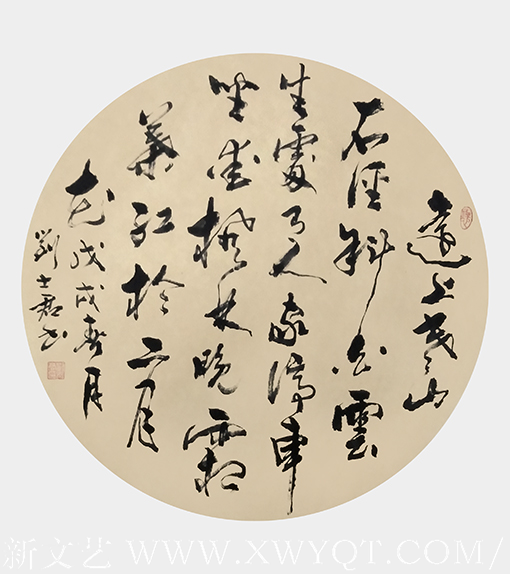 遠上寒山
石徑斜白雲
生處有人家停車
坐愛楓林晚霜
葉紅於二月
花戊戌春月
劉士君書
新文艺 WWW.XWYQT.COM/